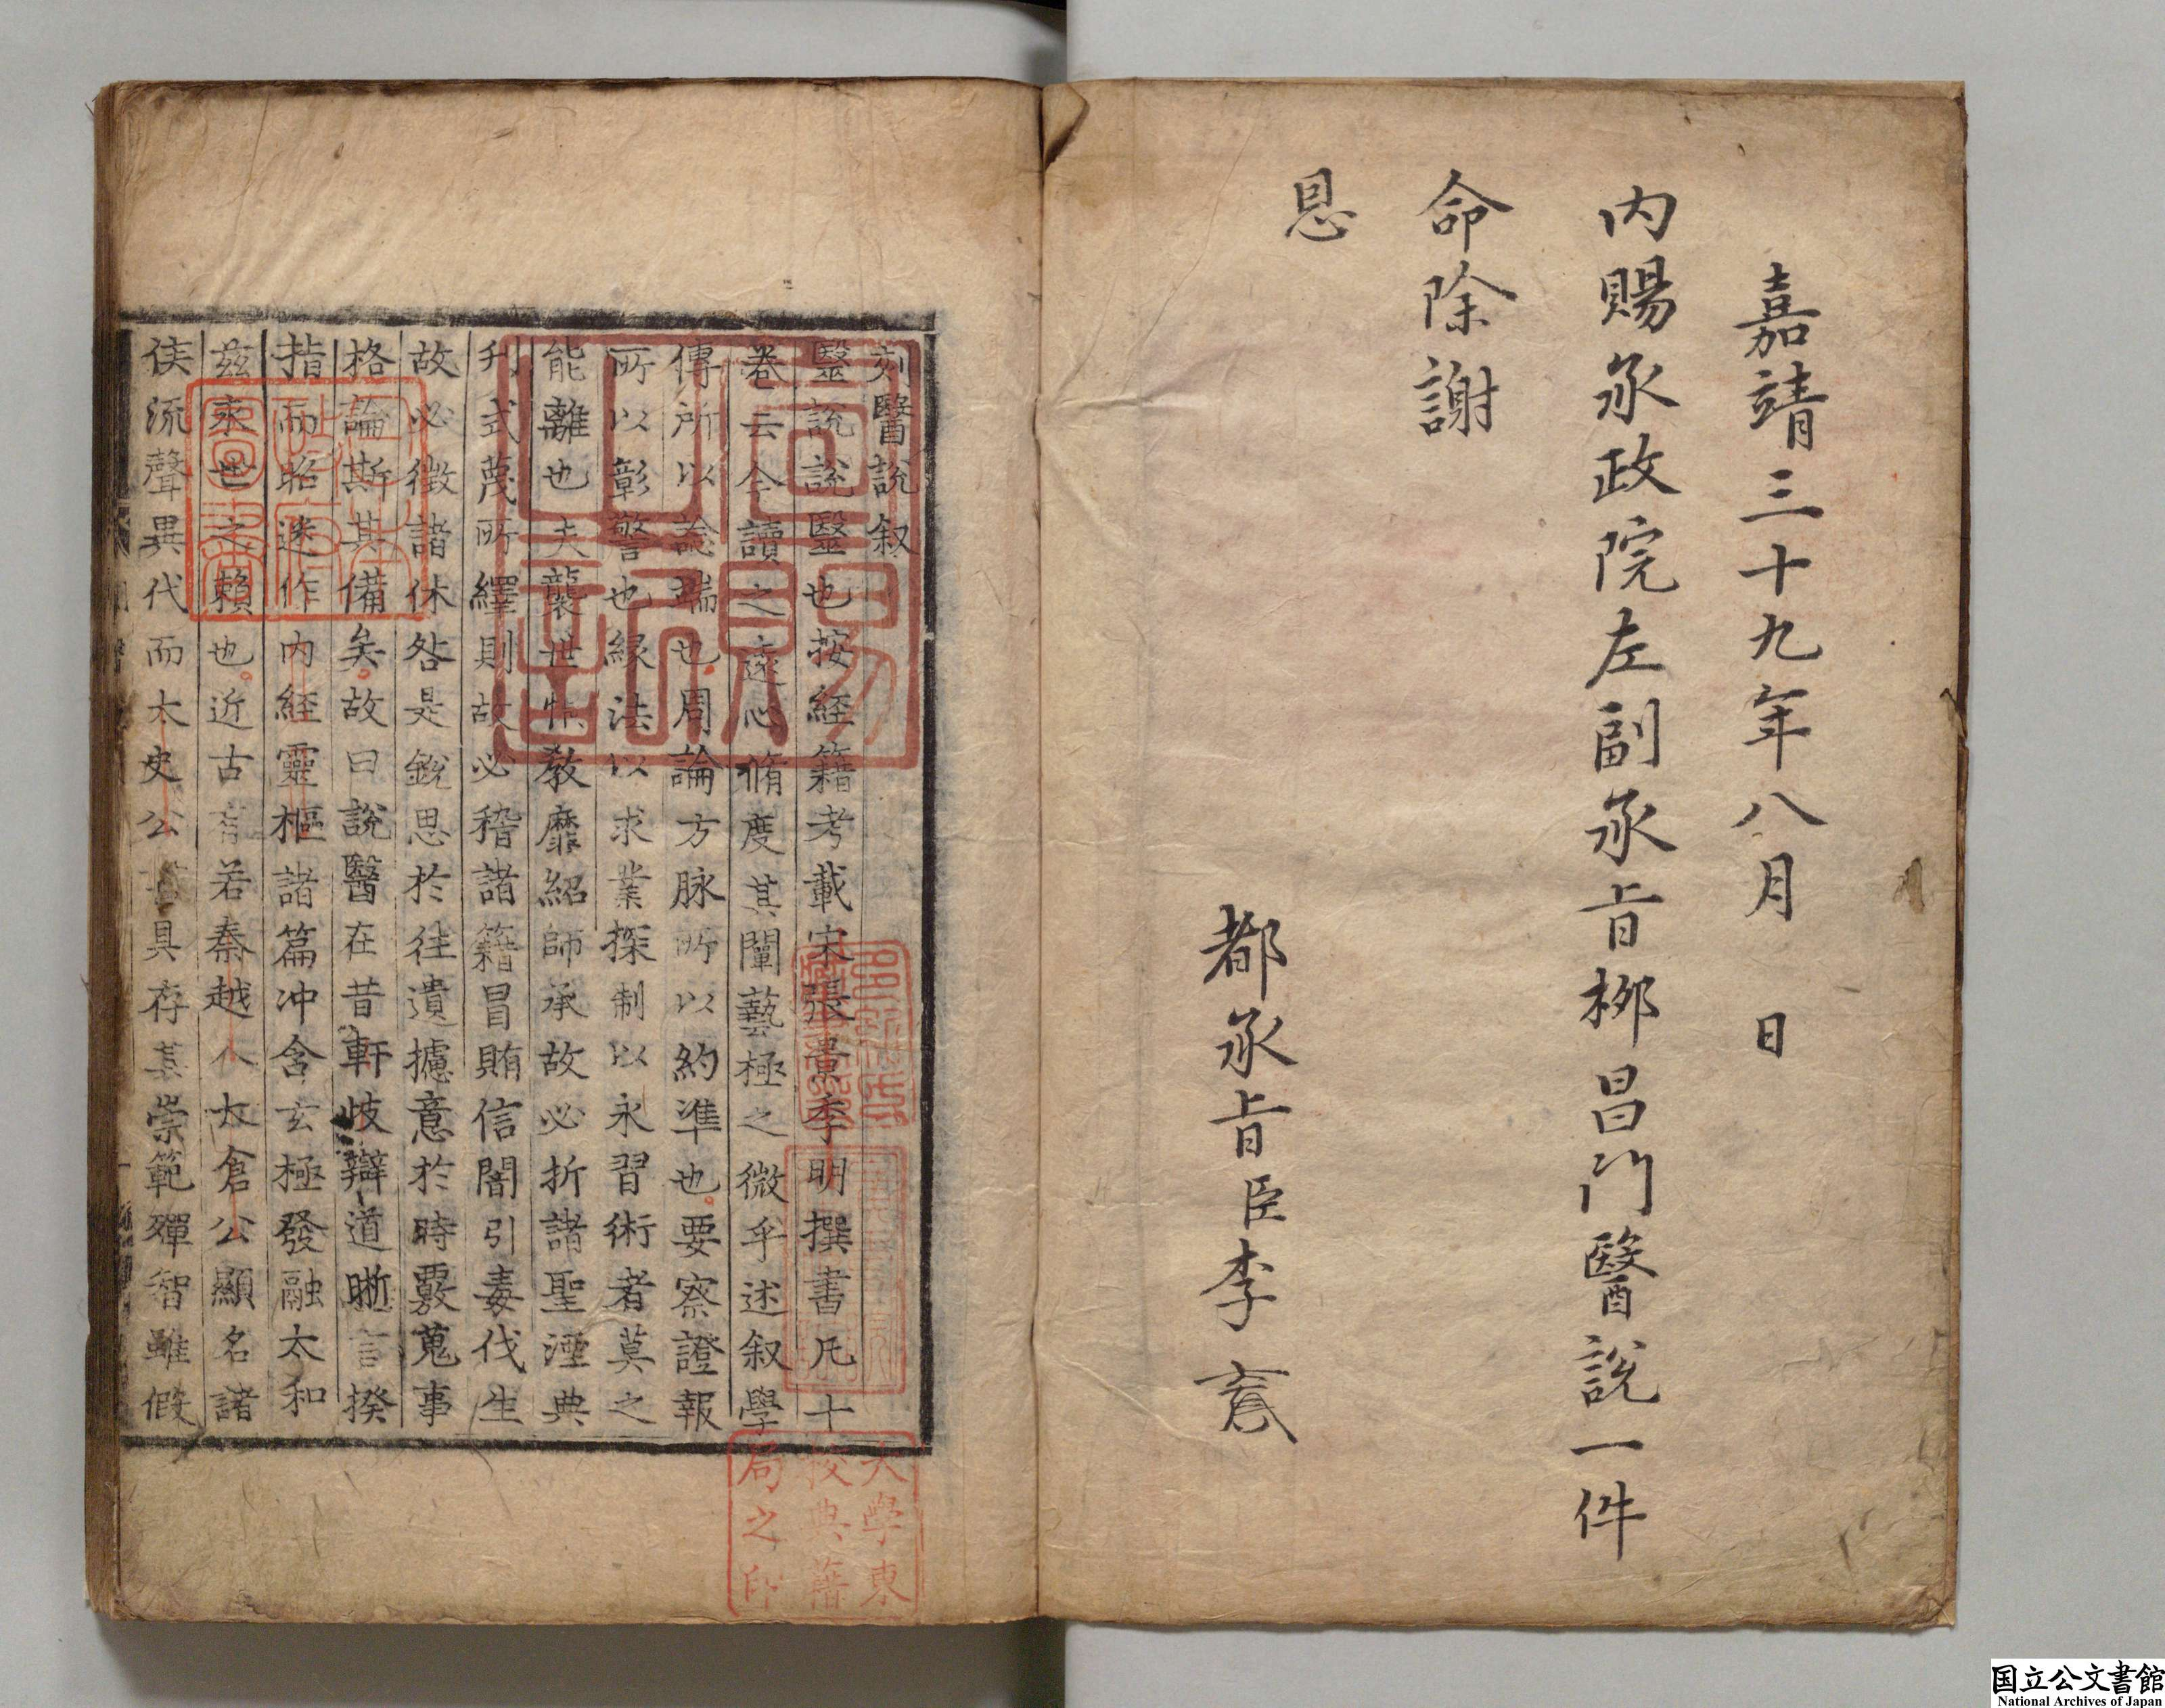 嘉靖三十九年八月　日
内賜承政院左副承旨柳昌門醫說一件
命除謝
恩
都承旨臣李
刻醫說叙
醫說說醫也按經籍考載宋張杲季明撰書凡十
卷云今讀之邃心脩度其闡藝極之微乎述叙學
傳所以諗端也周論方脉所以約準也要察證報
所以彰警也緣法以求業探制以永習術者莫之
能離也夫襲世恃教靡紹師承故必折諸聖湮典
刋式蔑所繹則故必稽諸籍冒賄信闇引毒伐生
故必徵諸休咎是銳思於往遺攄意於時覈蒐事
格論斯其備矣故曰說醫在昔軒岐辯道晰言揆
指而昭迷作内經靈樞諸篇冲含玄極發融太和
玆永世之賴也近古有若秦越人太倉公顯名諸
侯流聲異代而太史公具存其崇範殫智雖假
宣賜之記
大學東
校典籍
局之印
国立公文書館
National Archives of Japan